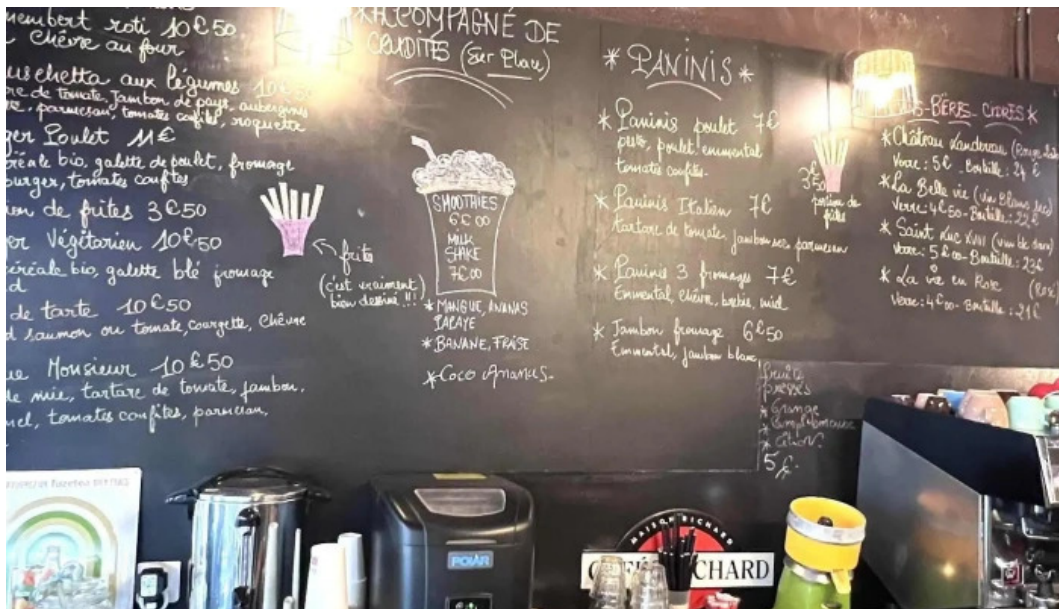 roti 10€50
chèvre au four
aux légumes 10€50
de tomate, Jambon de pays, aubergines
parmesan, tomates confites, roquette
Poulet 11€
bio, galette de poulet, fromage
burger, tomates confites
de frites 3€50
Végétarien 10€50
céréale bio, galette blé fromage
de tarte 10€50
saumon ou tomate, courgette, chèvre
Monsieur 10€50
de mie, tartare de tomate, jambon,
tomates confites, parmesan,
ACCOMPAGNÉ DE
CRUDITÉS (Sur Place)
frites
(c'est vraiment
bien dessiné!!!)
SMOOTHIES
6€00
MILK
SHAKE
7€00
* MANGUE, ANANAS
PAPAYE
* BANANE, FRAISE
* COCO Ananas.
* PANINIS *
* Paninis poulet 7€
pesto, poulet emmental
tomates confites.
* Paninis Italien 7€
tartare de tomate, jambon sec parmesan
* Paninis 3 fromages 7€
Emmental, chèvre, brebis, miel
* Jambon fromage 6€50
Emmental, jambon blanc
3€50
portion de
frites
BIÈRES - CIDRES *
* Château Landereau (Rouge
Verre : 5€ - Bouteille : 24€
* La Belle vie (vin blanc sec)
Verre : 4€50 - Bouteille : 22€
* Saint Luc XVIII (vin blc doux)
Verre : 5€00 - Bouteille : 23€
* La vie en Rose (Rosé
Verre : 4€00 - Bouteille : 21€
fruits
pressés
* Orange
* Pamplemousse
* Citron.
5€.
POLAR
MAISON RICHARD
CHARD